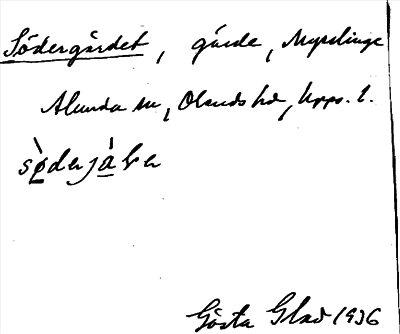 Södergärdet, gärde, Myrslinge
Alunda sn, Olands hd, Upps. l.
sö̀derjá
Gösta Glad 1936